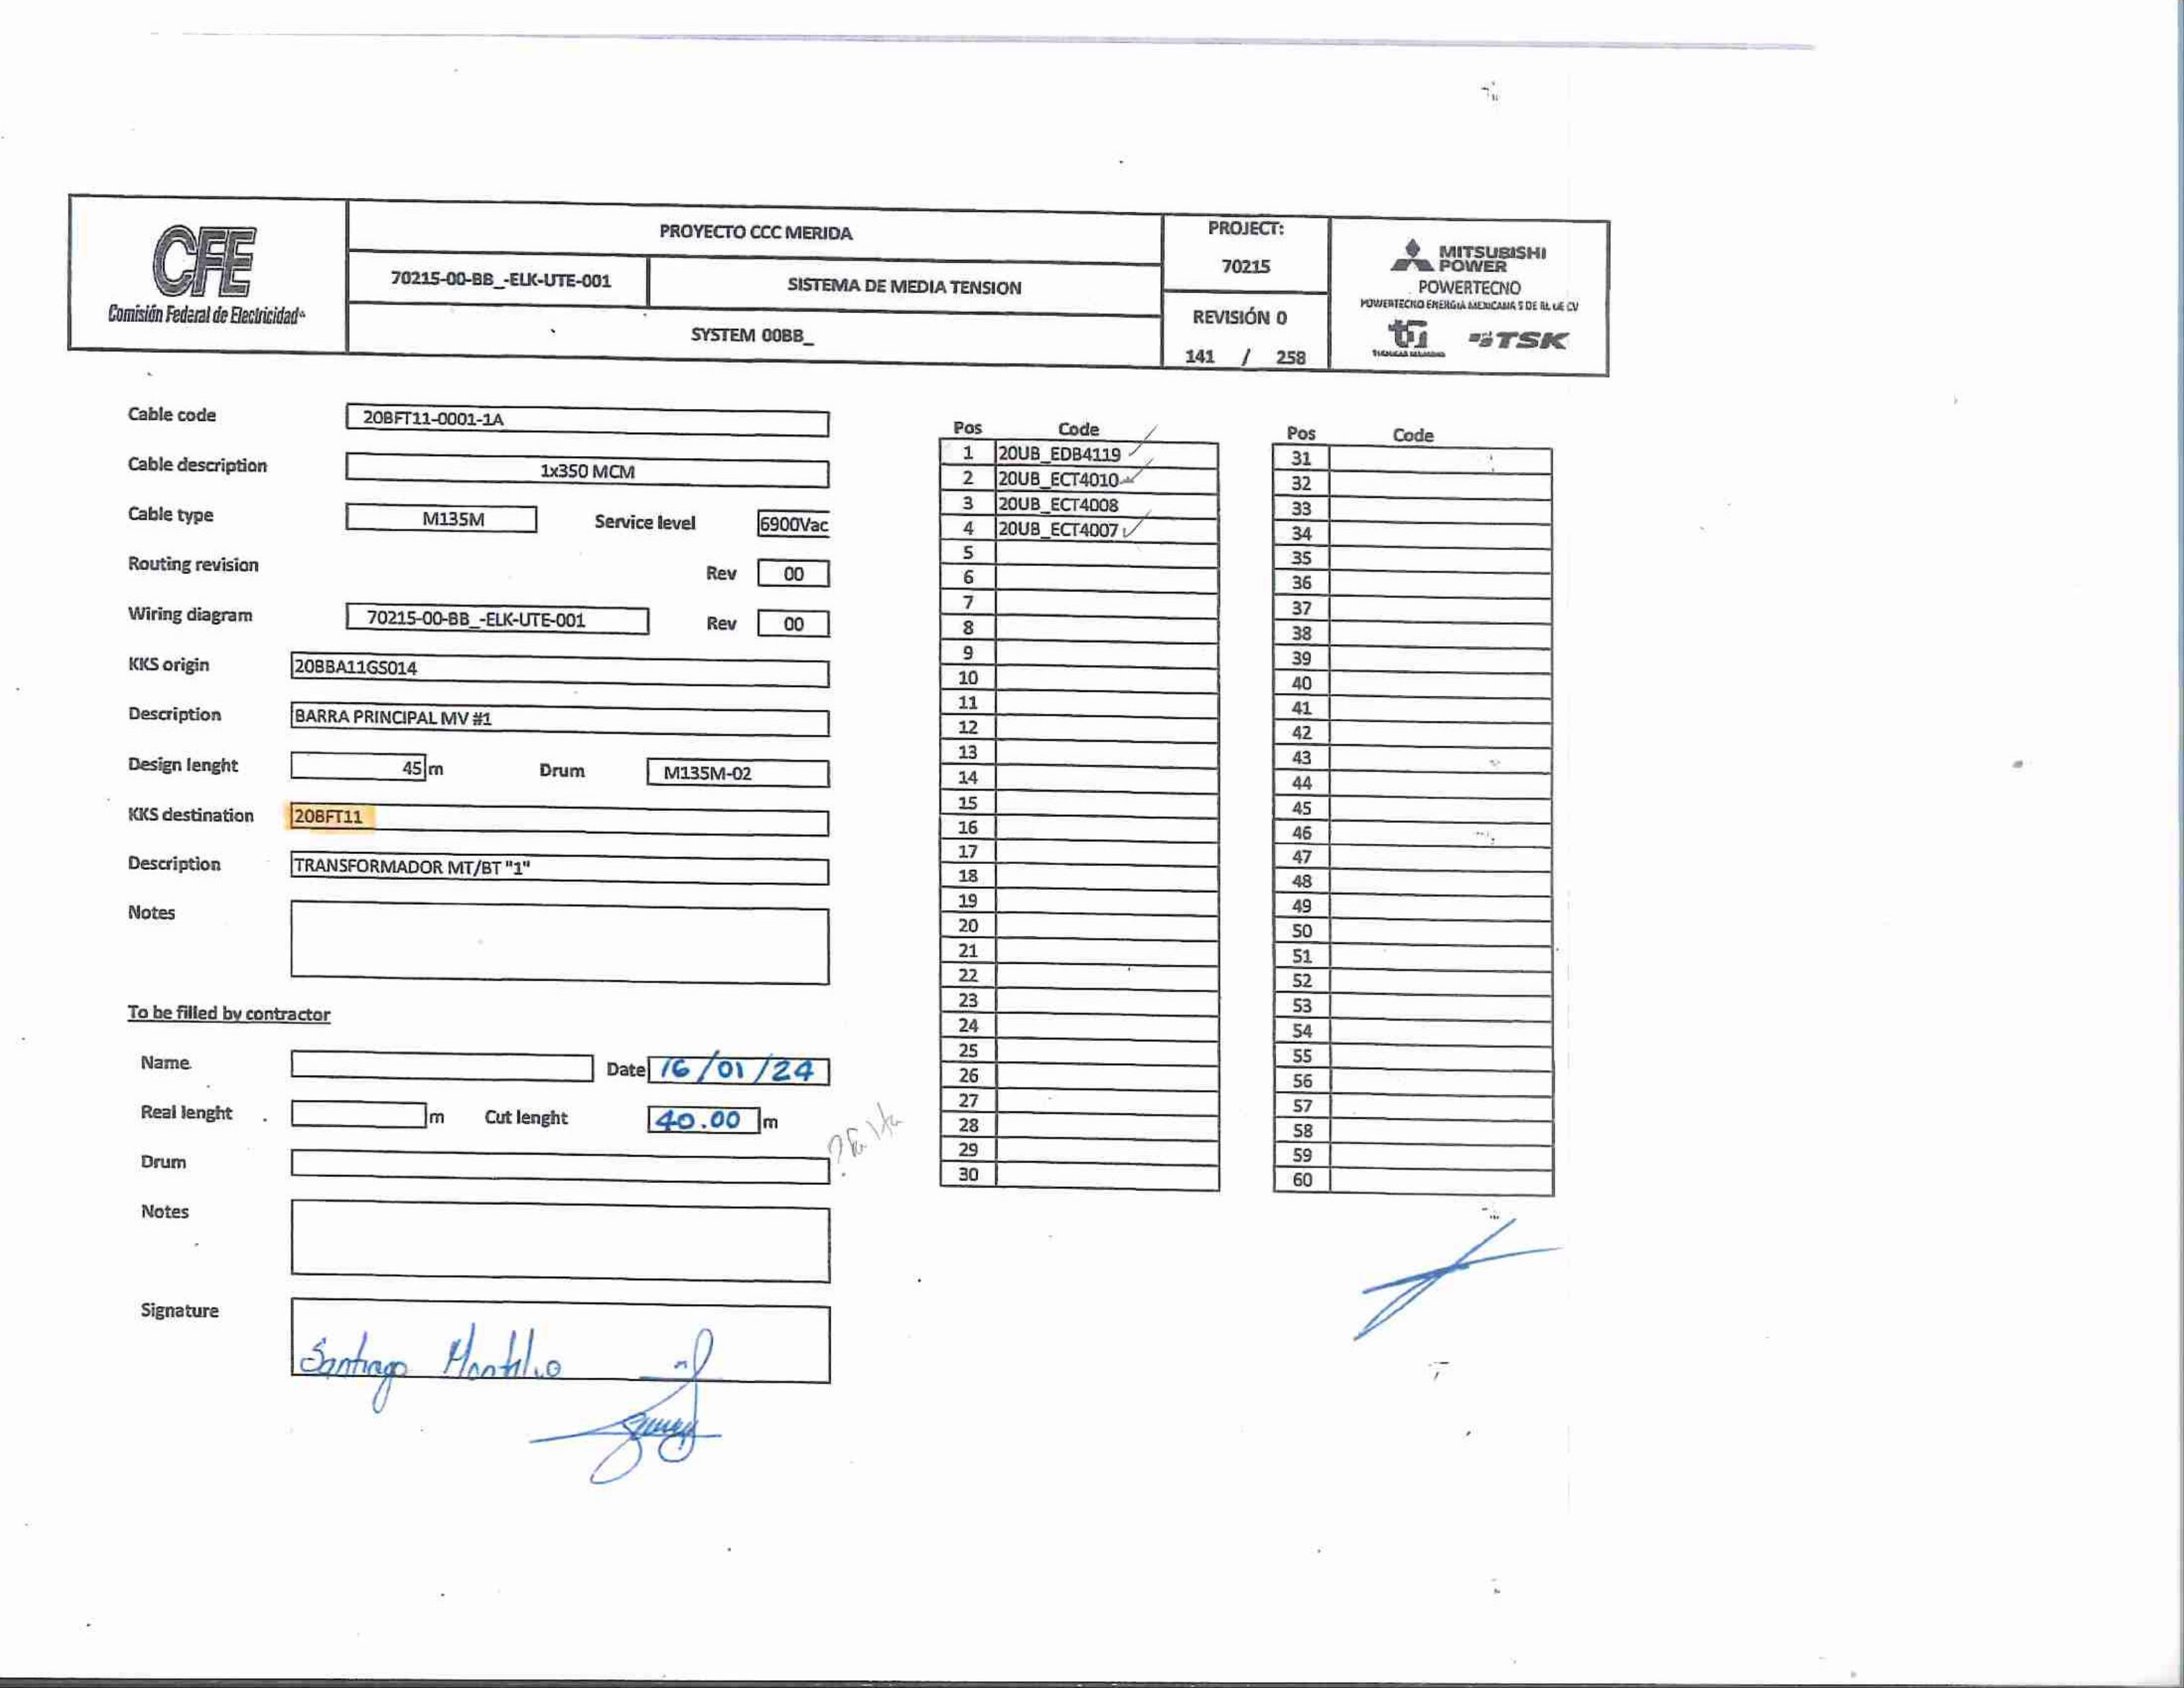 CFE
Comisión Federal de Electricidad
PROYECTO CCC MERIDA
70215-00-BB_-ELK-UTE-001
SISTEMA DE MEDIA TENSION
SYSTEM 00BB_
PROJECT:
70215
REVISIÓN 0
141 / 258
MITSUBISHI
POWER
POWERTECNO
POWERTECNO ENERGÍA MEXICANA S DE RL DE CV
TSK
Cable code 20BFT11-0001-1A
Cable description 1x350 MCM
Cable type M135M Service level 6900Vac
Routing revision Rev 00
Wiring diagram 70215-00-BB_-ELK-UTE-001 Rev 00
KKS origin 20BBA11GS014
Description BARRA PRINCIPAL MV #1
Design lenght 45 m Drum M135M-02
KKS destination 20BFT11
Description TRANSFORMADOR MT/BT "1"
Notes
To be filled by contractor
Name Date 16/01/24
Real lenght m Cut lenght 40.00 m
Drum
Notes
Signature
Santiago
Pos Code
1 20UB_EDB4119
2 20UB_ECT4010
3 20UB_ECT4008
4 20UB_ECT4007
5
6
7
8
9
10
11
12
13
14
15
16
17
18
19
20
21
22
23
24
25
26
27
28
29
30
Pos Code
31
32
33
34
35
36
37
38
39
40
41
42
43
44
45
46
47
48
49
50
51
52
53
54
55
56
57
58
59
60